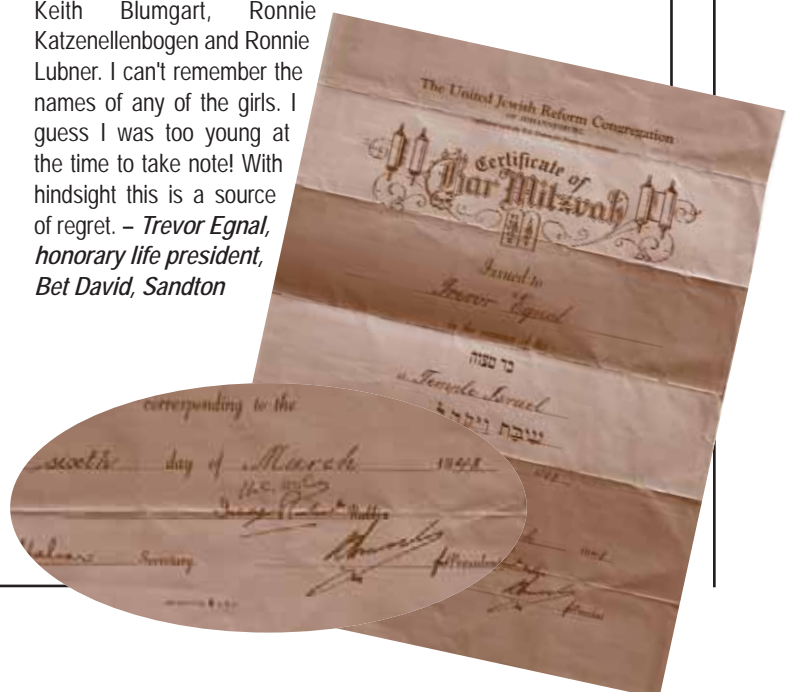 Keith Blumgart, Ronnie
Katzenellenbogen and Ronnie
Lubner. I can't remember the
names of any of the girls. I
guess I was too young at
the time to take note! With
hindsight this is a source
of regret. – Trevor Egnal,
honorary life president,
Bet David, Sandton
The United Jewish Reform Congregation
OF JOHANNESBURG
Certificate of
Bar Mitzvah
Issued to
Trevor Egnal
בר מצוה
Temple Israel
שבת ויקהל
corresponding to the
sixth day of March 1948
Rabbi
Secretary
President